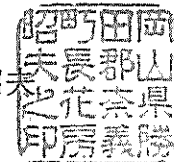 夫
岡山県勝
田郡奈義
町長花房
昭夫之印